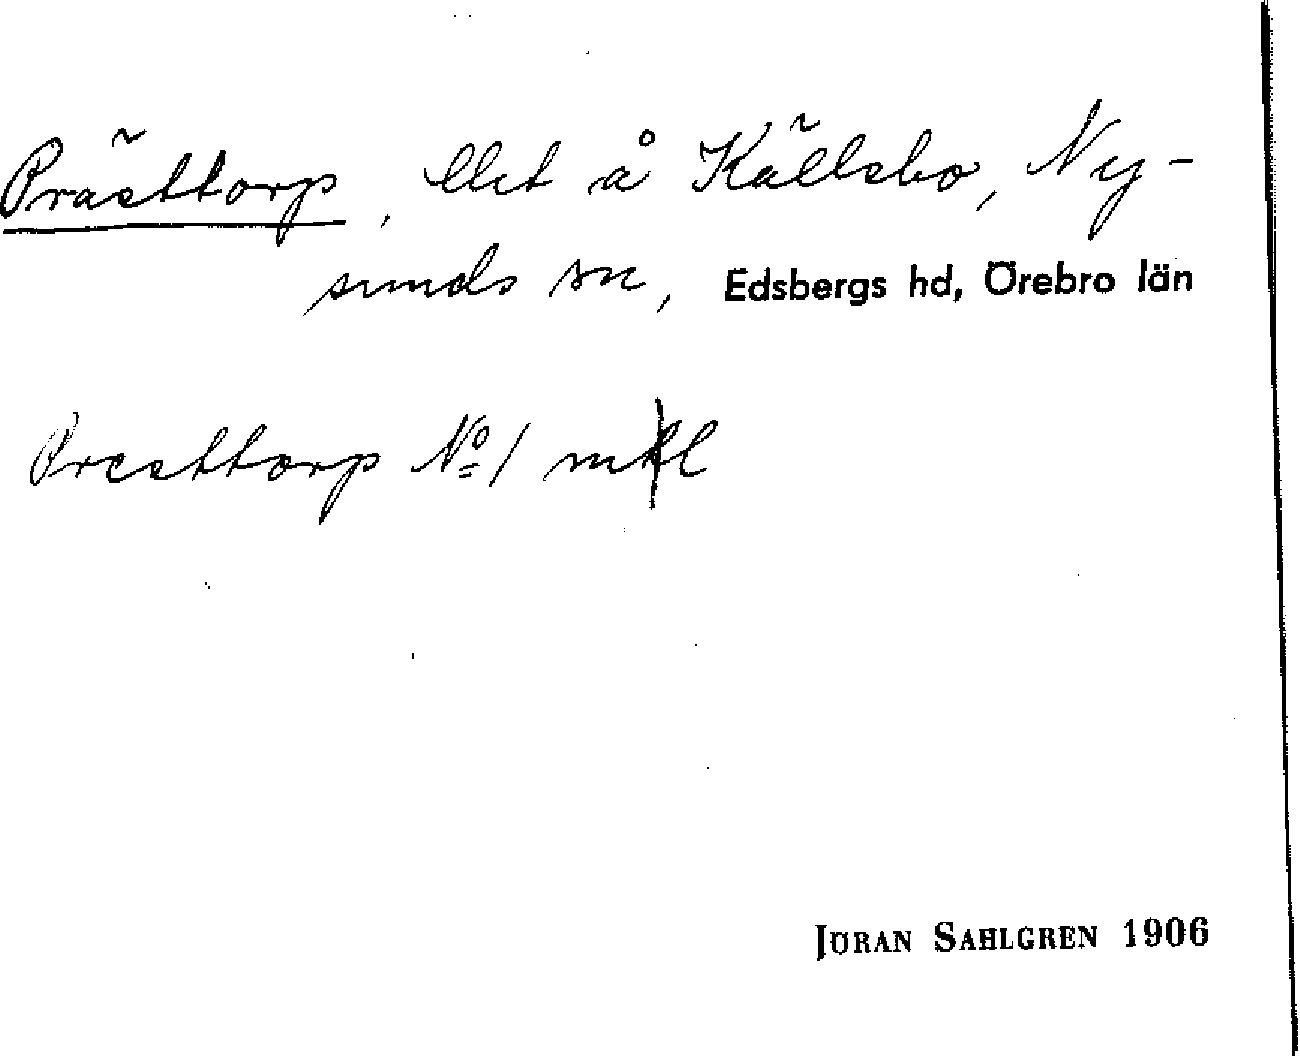 Prästtorp, llet å Källsbo, Ny-
sunds sn, Edsbergs hd, Örebro län
Presttorp No 1 mtl
JÖRAN SAHLGREN 1906